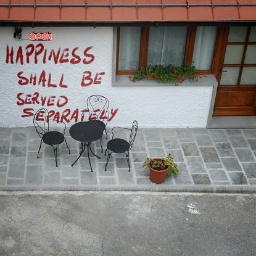 HAPPINESS
SHALL BE
SERVED
SEPARATELY